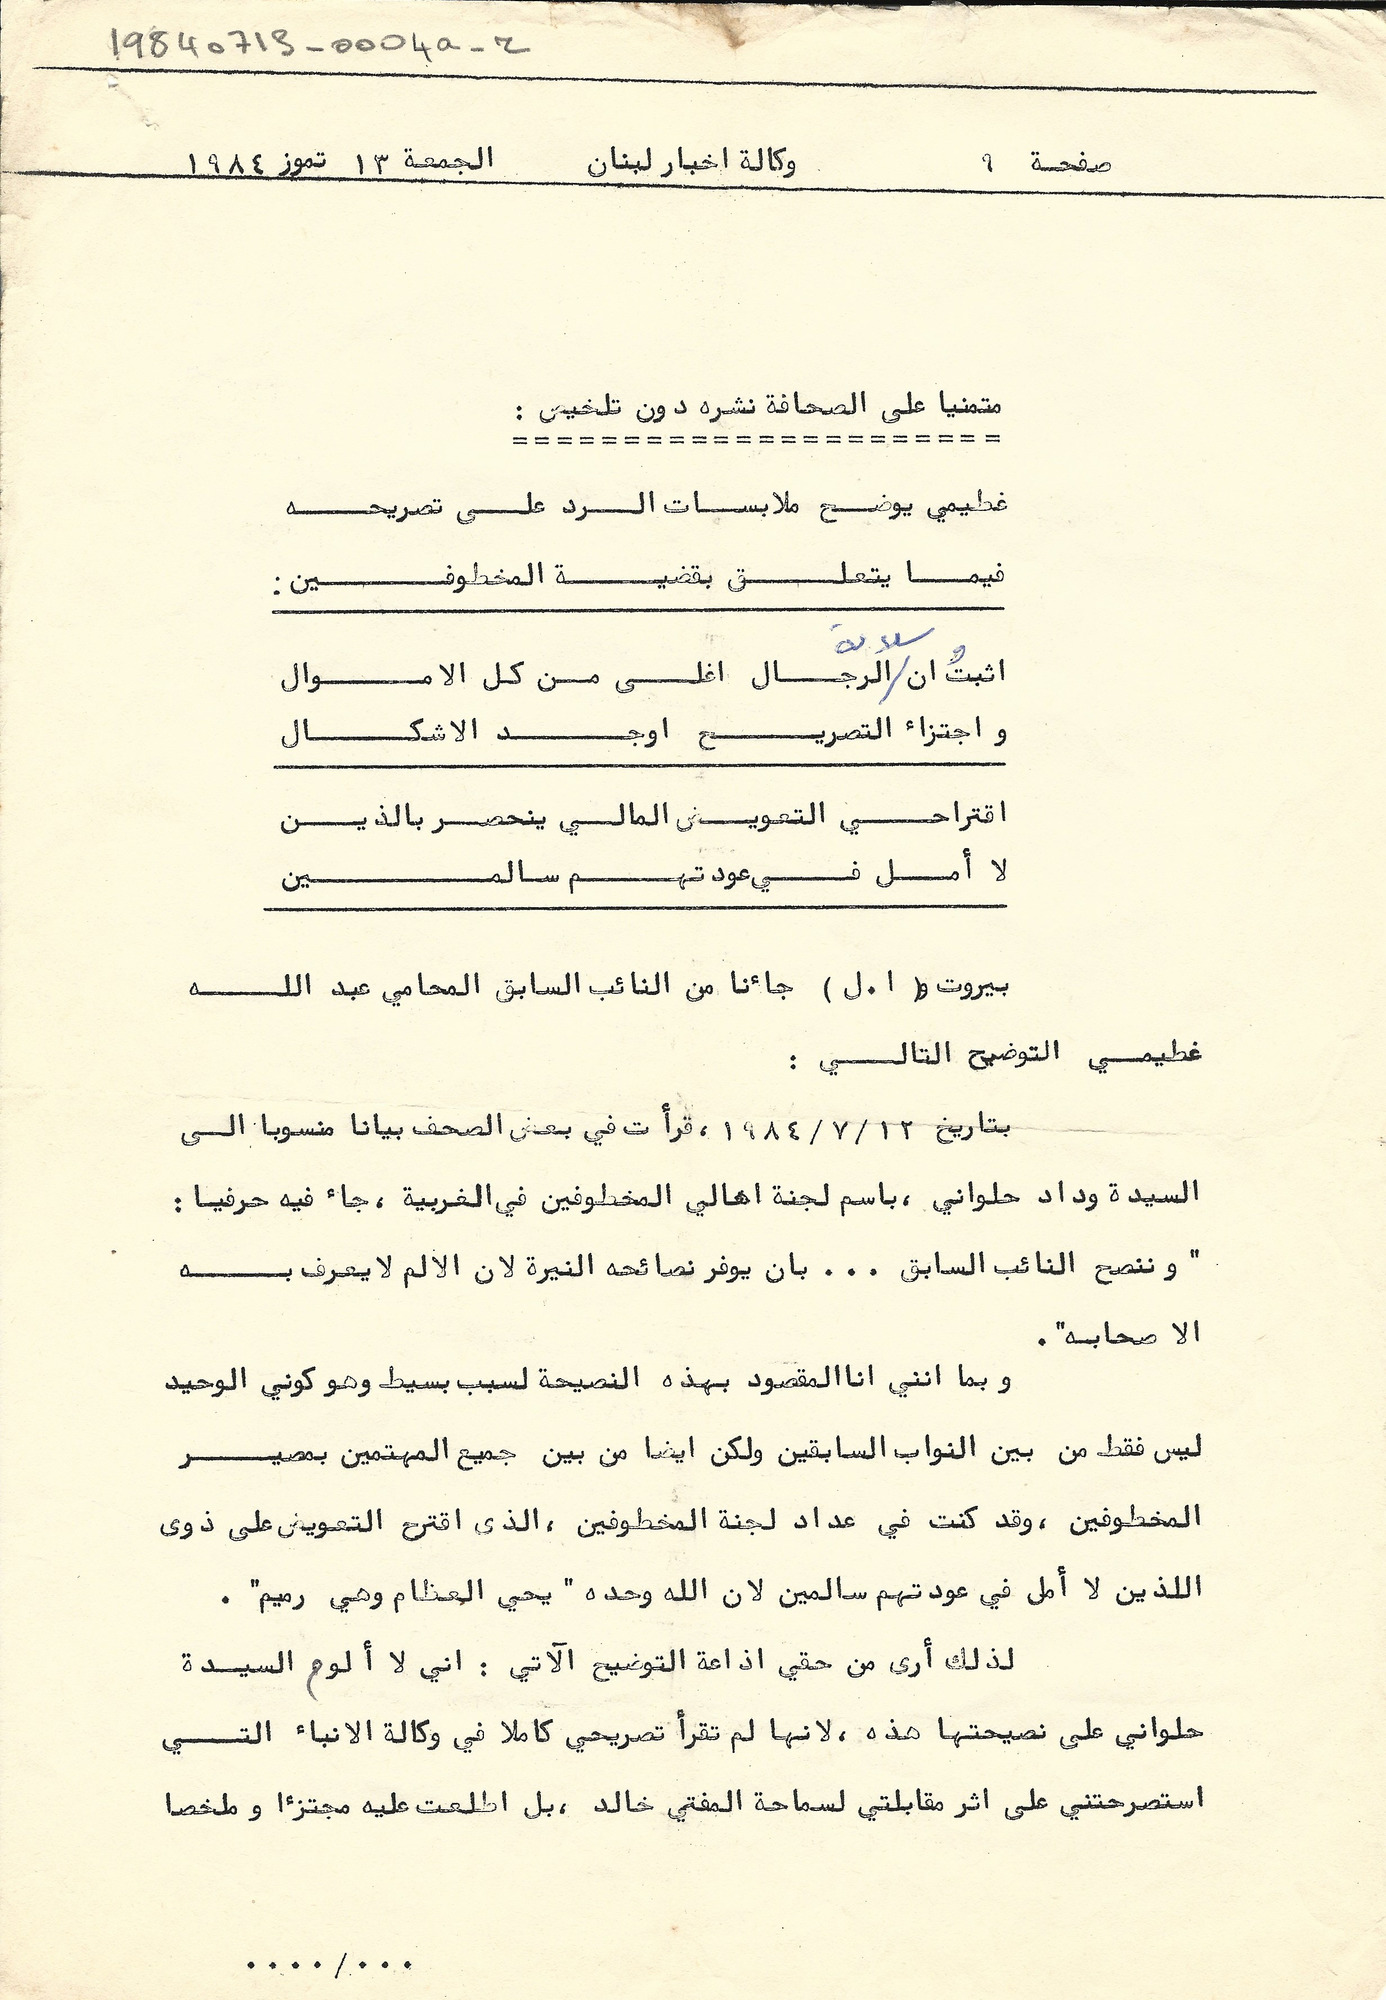 19840713-0004a-r
صفحة ٩ وكالة اخبار لبنان الجمعة ١٣ تموز ١٩٨٤
متمنيا على الصحافة نشره دون تلخيص :
======================
غطيمي يوضح ملابسات الرد على تصريحه
فيما يتعلق بقضية المخطوفين :
و سلامة
اثبت ان/الرجال اغلى من كل الاموال
و اجتزاء التصريح اوجد الاشكال
اقتراحي التعويض المالي ينحصر بالذين
لا أمل في عودتهم سالمين
بيروت و( ا.ل ) جاءنا من النائب السابق المحامي عبد الله
غطيمي التوضيح التالي :
بتاريخ ١٢/ ٧/ ١٩٨٤ ،قرأت في بعض الصحف بيانا منسوبا الى
السيدة وداد حلواني ،باسم لجنة اهالي المخطوفين في الغربية ،جاء فيه حرفيا :
" و ننصح النائب السابق ... بان يوفر نصائحه النيرة لان الالم لا يعرف به
الا صحابه".
و بما انني انا المقصود بهذه النصيحة لسبب بسيط وهو كوني الوحيد
ليس فقط من بين النواب السابقين ولكن ايضا من بين جميع المهتمين بمصير
المخطوفين ،وقد كنت في عداد لجنة المخطوفين ،الذى اقترح التعويض على ذوى
اللذين لا أمل في عودتهم سالمين لان الله وحده " يحي العظام وهي رميم" .
لذلك أرى من حقي اذاعة التوضيح الآتي : اني لا ألوم السيدة
حلواني على نصيحتها هذه ،لانها لم تقرأ تصريحي كاملا في وكالة الانباء التي
استصرحتني على اثر مقابلتي لسماحة المفتي خالد ،بل اطلعت عليه مجتزءا و ملخصا
..../...